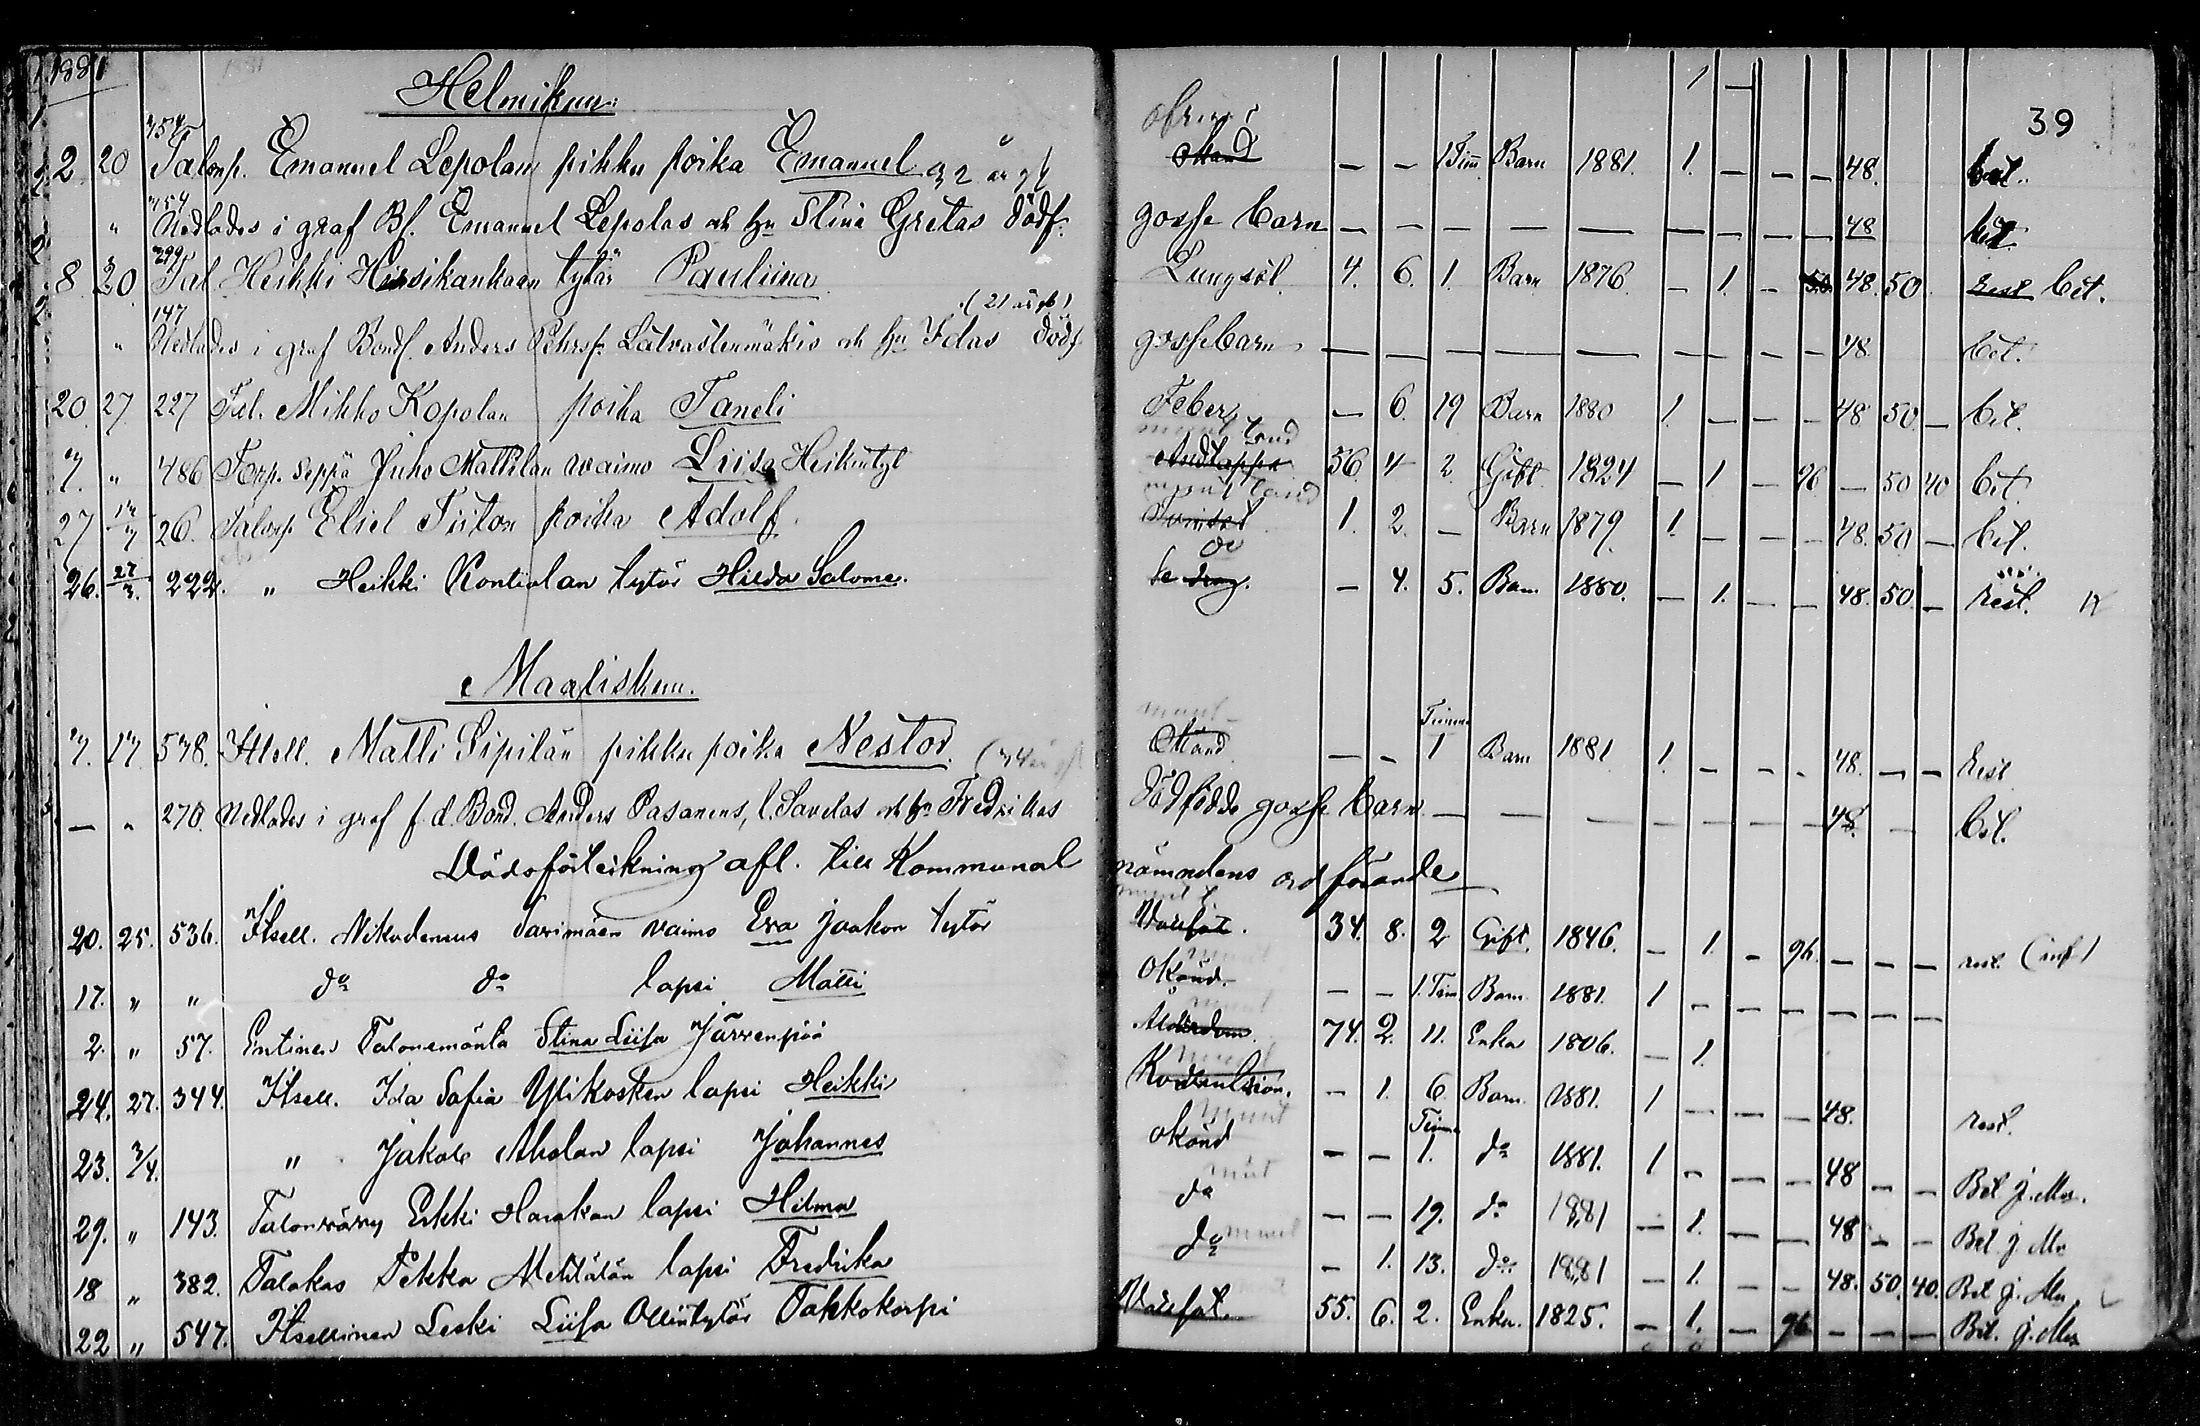 1881
Helmikuu.
1 —
39
754
2 20 Talonp. Emanuel Lepolan pikku poika Emanuel 32 år gl — — 1 Tim Barn 1881. 1. — — — 48. bet.
754
" Nedlades i graf Bf. Emanuel Lepolas och hu Stina Gretas dödf. gosse barn — — — — — — — — — 48 bet.
299
8 20 Tal Heikki Hirsikankaan tytär Pauliina Lungsot 4. 6. 1. Barn 1876 — 1. — 48. 50 rest bet.
147 (21 år gl)
" Nedlades i graf Bond. Anders Pehrsf: Latvastenmäkis och hu Idas dödf. gossebarn — — — — — — — — — 48 bet.
20 27 227 Tal. Mikko Kopolan poika Taneli Feber — 6. 19 Barn 1880 1. — — — 48 50 — bet.
7. " 486 Torp. Seppä Juho Mattilan vaimo Liisa Heikintyt 56 4 2 Gift 1824 — 1 — 96 — 50 40 bet.
27 17/7 26. Talonp. Eliel Tiiton poika Adolf. 1. 2. — Barn 1879. 1. — — — 48. 50 — bet.
26. 27/3. 222. " Heikki Kontiolan tytär Hilda Salome. — 4. 5. Barn 1880. — 1. — — 48. 50. — rest.
Maaliskuu.
7. 17. 538. Itsell. Matti Sipilän pikku poika Nestor. Okänd — — Timma 1 Barn 1881 1. — — — 48. — — rest
— " 270. Nedlades i graf f. d. Bond. Anders Pasanens, l. Savelas och hu Fredrikas dödfödde gosse barn — — — — — — — 48. — bet.
Dödsförteckning afl. till Kommunal nämndens ordförande
20. 25. 536. Itsell. Nikodemus Sarimäen vaimo Eva Jaakon tytär 34. 8. 2 Gift. 1846. — 1. — 96. — — — rest.
17. " " do do lapsi Matti Okänd. — — 1. Tim. Barn. 1881. 1 — — — — — —
2. " 57. Entinen Talonemäntä Stina Liisa Järvenpää Ålderdom. 74. 2. 11. Enka 1806. — 1.
24. 27. 344. Itsell. Ida Sofia Ylikosken lapsi Heikki Konvulsion. — 1. 6. Barn. 1881. 1 — — — 48. rest.
23. 3/4. " Jakob Aholan lapsi Johannes Okänd — — Timma 1. do 1881. 1 — — — 48 — — Bet J. Mn.
29. " 143. Talonvävy Erkki Harakan lapsi Hilma do — — 19. do 1881 — 1. — — 48 — — Bet J. Mn
18 " 382. Talokas Pekka Mettälän lapsi Fredrika do — 1. 13. do 1881 — 1. — — 48. 50. 40. Bet J. Mn
22 " 547. Itsellinen Leski Liisa Ollintytär Takkokorpi 55. 6. 2. Enka. 1825. — 1. — 96 — — — Bet. J. Mn